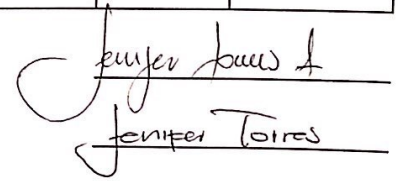 Jenifer Torres A
Jenifer Torres